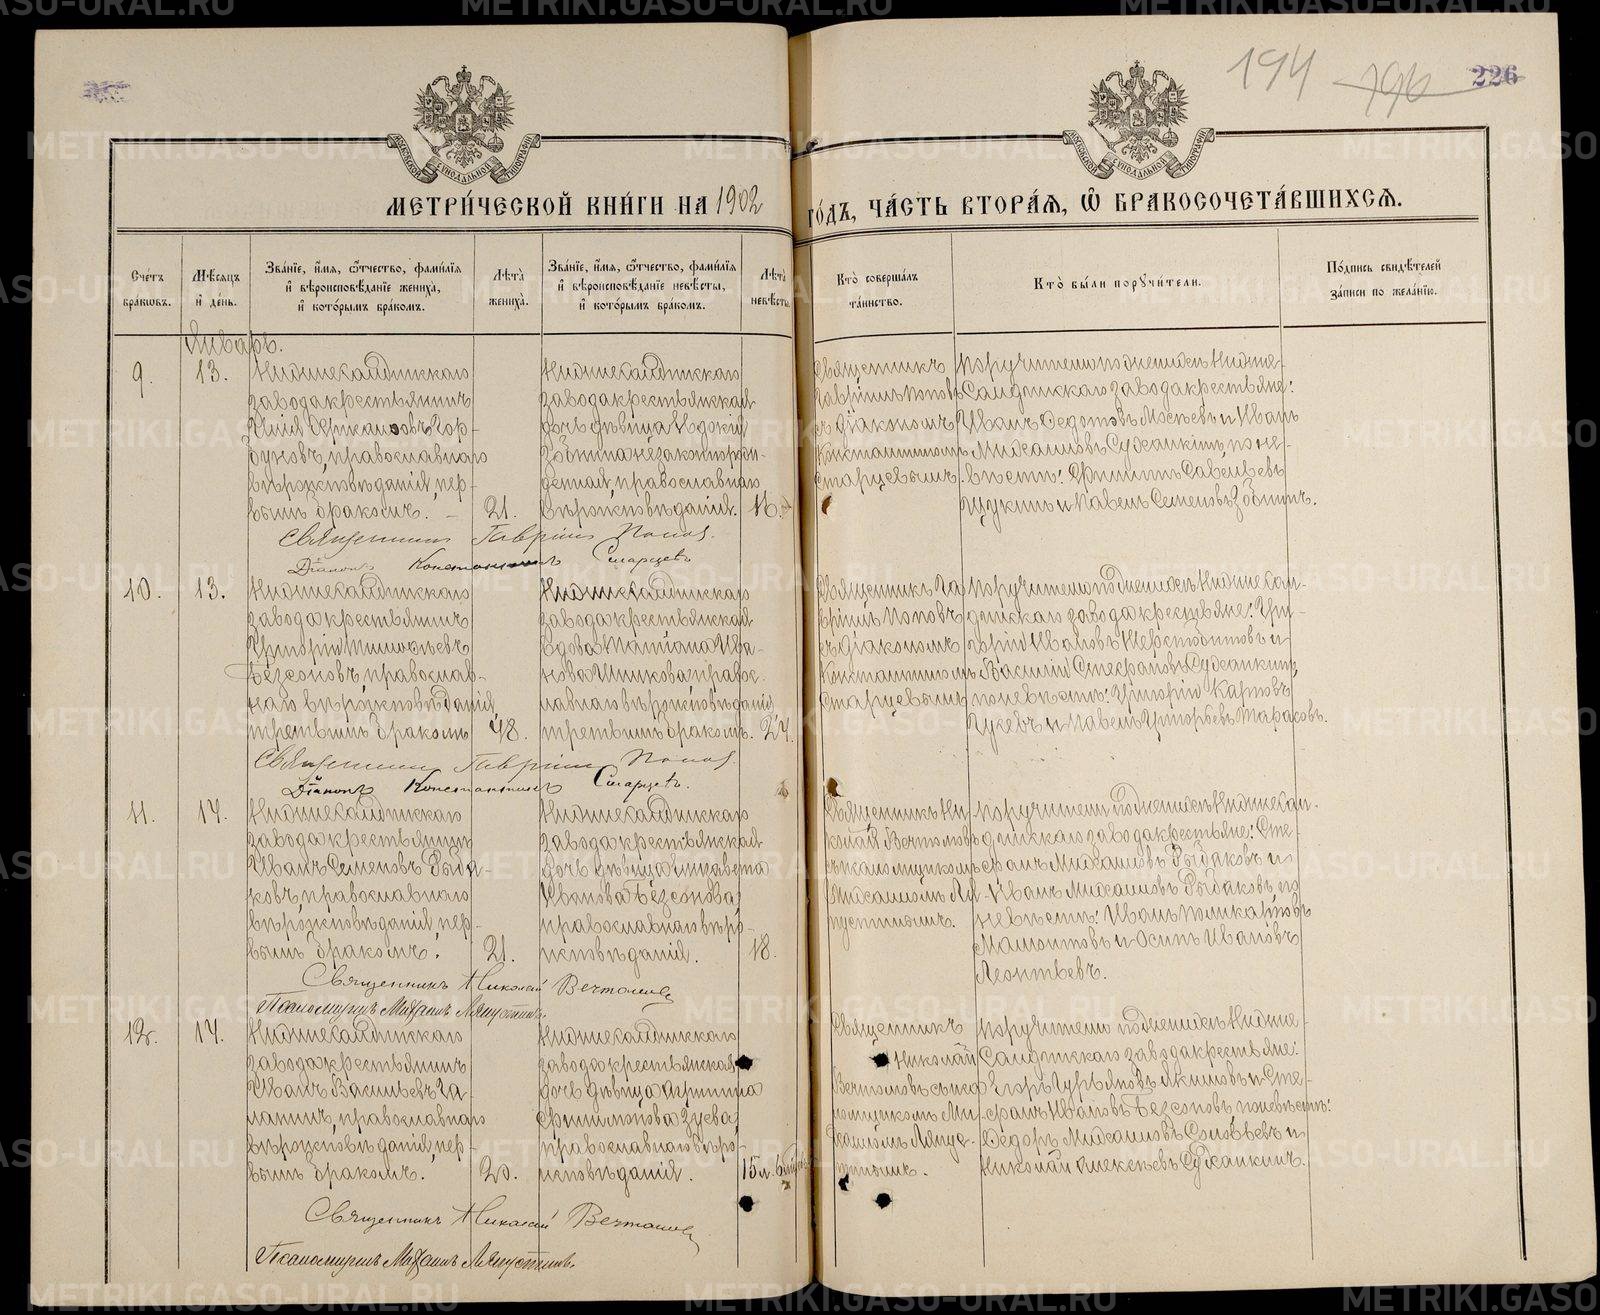 194 196 226
МОСКОВСКОЙ СѴНОДАЛЬНОЙ ТИПОГРАФІИ
МОСКОВСКОЙ СѴНОДАЛЬНОЙ ТИПОГРАФІИ
МЕТРИ́ЧЕСКОЙ КНИ́ГИ НА 1902 ГО́ДЪ, ЧА́СТЬ ВТОРА́Ѧ, Ѽ БРАКОСОЧЕТА́ВШИХСѦ.
Сче́тъ браковъ.
Мѣ́сѧцъ и де́нь.
Зва́нїе, и́мѧ, ѻ҆́тчество, фами́лїѧ и вѣроисповѣ́данїе жениха̀, и кото́рымъ бракомъ.
Лѣ́та жениха̀.
Зва́нїе, и́мѧ, ѻ҆́тчество, фами́лїѧ и вѣроисповѣ́данїе невѣ́сты, и кото́рымъ бракомъ.
Лѣ́та невѣ́сты.
Кто̀ соверша́лъ та́инство.
Кто̀ бы́ли порꙋчи́тели.
По́дпись свидѣ́телей за́писи по жела́нїю.
Январь.
9.
13.
Нижнесалдинскаго
завода крестьянинъ
Гор-
буновъ, православнаго
вѣроисповѣданія, пер-
вымъ бракомъ.
21.
Нижнесалдинскаго
завода крестьянская
дочь дѣвица Евдокія
Зобнина незаконнорож-
денная, православнаго
вѣроисповѣданія.
16.
Священникъ
Гавріилъ Поповъ
съ діакономъ
Константиномъ
Старцевымъ.
Поручители по женихѣ Нижне-
Салдинскаго завода крестьяне:
Иванъ Федотовъ Мосѣевъ и Иванъ
Михаиловъ Судханкинъ, по не-
вѣстѣ: Филиппъ Савельевъ
Щукинъ и Павелъ Семеновъ Зобнинъ.
Священникъ Гавріилъ Поповъ.
Діаконъ Константинъ Старцевъ
10.
13.
Нижнесалдинскаго
завода крестьянинъ
Григорій Тимоѳеевъ
Безсоновъ, православ-
наго вѣроисповѣданія,
третьимъ бракомъ
48.
Нижнесалдинскаго
завода крестьянская
вдова Татіана Ива-
нова Шикова, правос-
лавнаго вѣроисповѣданія
третьимъ бракомъ.
Священникъ Га-
вріилъ Поповъ
съ діакономъ
Константиномъ
Старцевымъ
Поручители по женихѣ Нижнесал-
динскаго завода крестьяне: Гри-
горій Ивановъ Шерстобитовъ и
Василій Стефановъ Судханкинъ,
по невѣстѣ: Григорій Карповъ
Гужевъ и Павелъ Григорьевъ Тарасовъ.
Священникъ Гавріилъ Поповъ.
Діаконъ Константинъ Старцевъ.
11.
17.
Нижнесалдинскаго
завода крестьянинъ
Иванъ Семеновъ Рыда-
ковъ, православнаго
вѣроисповѣданія, пер-
вымъ бракомъ.
21.
Нижнесалдинскаго
завода крестьянская
дочь дѣвица Елизавета
Иванова Безсонова,
православнаго вѣро-
исповѣданія.
18.
Священникъ Ни-
колай
съ псаломщикомъ
Михаиломъ Ля-
пустинымъ.
Поручители по женихѣ Нижнесал-
динскаго завода крестьяне: Сте-
фанъ Михаиловъ Рыдаковъ и
Иванъ Михаиловъ Рыдаковъ, по
невѣстѣ: Иванъ Поликарповъ
Мамонтовъ и Осипъ Ивановъ
Леонтьевъ.
Священникъ Николай
Псаломщикъ Михаилъ Ляпустинъ.
12.
17.
Нижнесалдинскаго
завода крестьянинъ
Иванъ Васильевъ Га-
ланинъ, православнаго
вѣроисповѣданія, пер-
вымъ бракомъ.
20.
Нижнесалдинскаго
завода крестьянская
дочь дѣвица
Филимонова Зуева,
православнаго вѣро-
исповѣданія.
15 л. 6 м.
Священникъ
Николай
съ пса-
ломщикомъ Ми-
хаиломъ Ляпус-
тинымъ.
Поручители по женихѣ Нижне-
Салдинскаго завода крестьяне:
Егоръ Гурьяновъ Якимовъ и Сте-
фанъ Ивановъ Безсоновъ, по невѣстѣ:
Ѳедоръ Михаиловъ Соловьевъ и
Николай Алексѣевъ Судханкинъ.
Священникъ Николай
Псаломщикъ Михаилъ Ляпустинъ.
METRIKI.GASO-URAL.RU